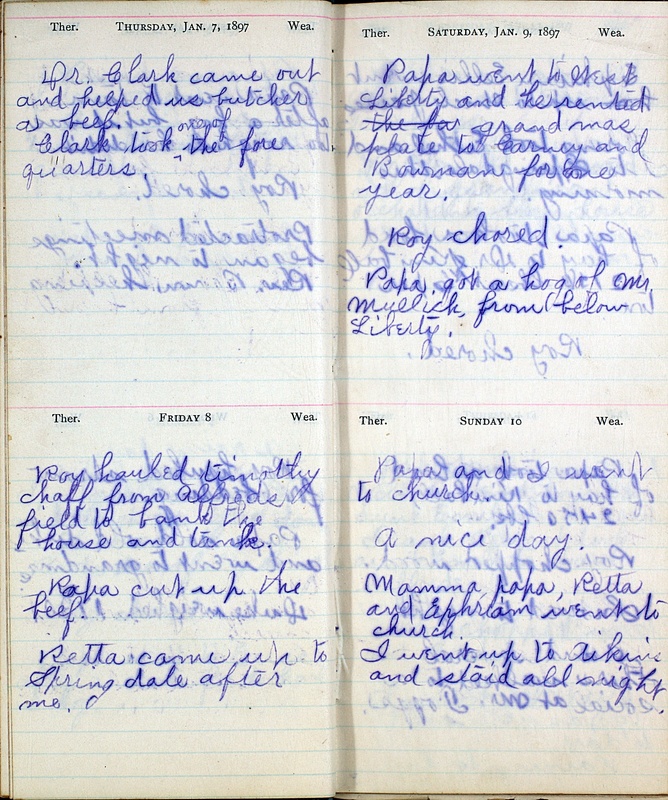 Ther. THURSDAY, JAN. 7, 1897 Wea.
Dr. Clark came out
and helped us butcher
a beef.
Clark took one of the fore
quarters.
Ther. FRIDAY 8 Wea.
Roy hauled timothy
chaff from Alfreds
field to bank the
house and tank.
Papa cut up the
beef.
Retta came up to
Springdale after
me.
Ther. SATURDAY, JAN. 9, 1897 Wea.
Papa went to West
Liberty and he rented
the far grandmas
place to Carney and
Bowman for one
year.
Roy chored.
Papa got a hog of Mr.
Myllick, from below
Liberty.
Ther. SUNDAY 10 Wea.
Papa and I went
to church.
A nice day.
Mamma, papa, Retta
and Ephriam went to
church.
I went up to Aikins
and staid all night.